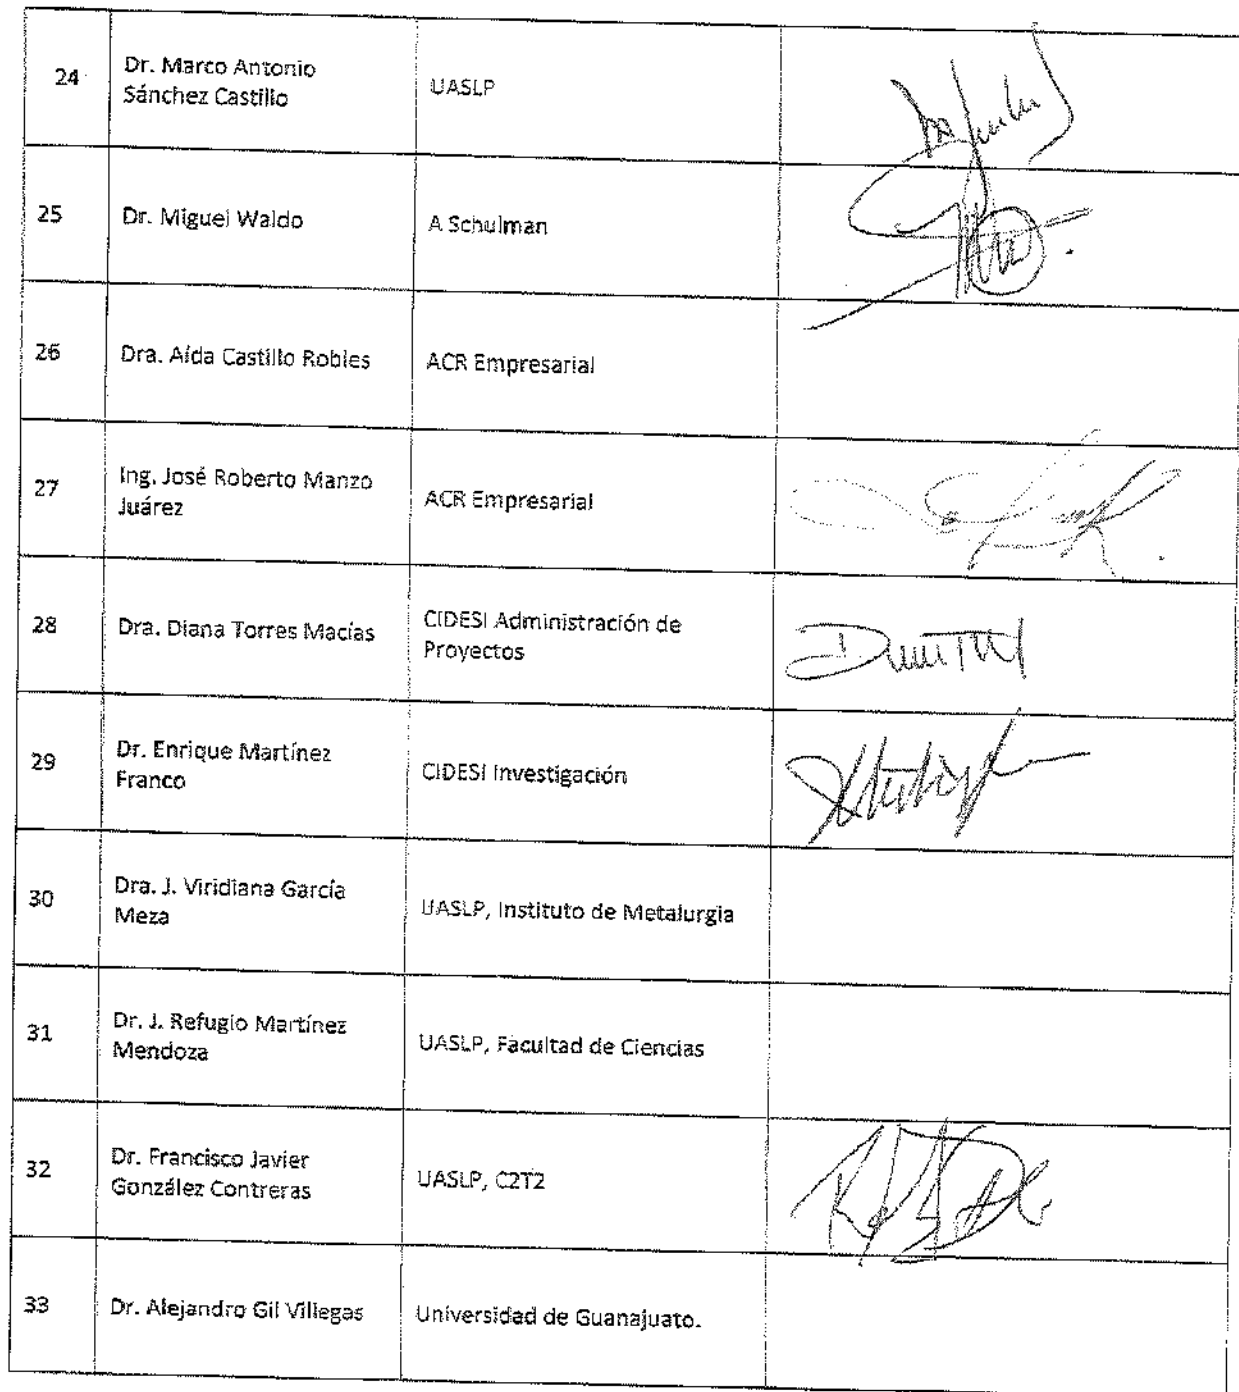 24
Dr. Marco Antonio
Sánchez Castillo
UASLP
25
Dr. Miguel Waldo
A Schulman
26
Dra. Aída Castillo Robles
ACR Empresarial
27
Ing. José Roberto Manzo
Juárez
ACR Empresarial
28
Dra. Diana Torres Macías
CIDESI Administración de
Proyectos
29
Dr. Enrique Martínez
Franco
CIDESI Investigación
30
Dra. J. Viridiana García
Meza
UASLP, Instituto de Metalurgia
31
Dr. J. Refugio Martínez
Mendoza
UASLP, Facultad de Ciencias
32
Dr. Francisco Javier
González Contreras
UASLP, C2T2
33
Dr. Alejandro Gil Villegas
Universidad de Guanajuato.